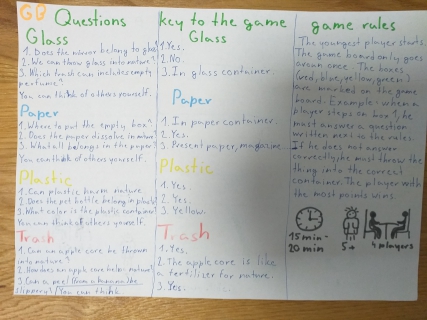 GB
Questions
Glass
1. Does the mirror belong to glass
2. We can throw glass into nature?
3. Which trash can includes empty
perfume?
You can think of others yourself.
Paper
1. Where to put the empty box?
2. Does the paper dissolve in nature?
3. What all belongs in the paper?
You can think of others yourself.
Plastic
1. Can plastic harm nature
2. Does the pet bottle belong in plastic
3. What color is the plastic container
You can think of others yourself.
Trash
1. Can an apple core be thrown
into nature?
2. How does an apple core help nature?
3. Can a peel from a banana be
slippery? You can think
key to the game
Glass
1. Yes.
2. NO.
3. In glass container.
Paper
1. In paper container.
2. Yes.
3. Present paper, magazine
Plastic
1. Yes.
2. Yes.
3. Yellow.
Trash
1. Yes.
2. The apple core is like
a fertilizer for nature.
3. Yes.
game rules
The youngest player starts.
The game board only goes
aroun once. The boxes
(red, blue, yellow, green)
are marked on the game
board. Example: when a
player steps on box 1, he
must answer a question
written next to the rules.
If he does not answer
correctly, he must throw the
thing into the correct
container. The player with
the most points wins.
15 min-
20 min
5+
4 players